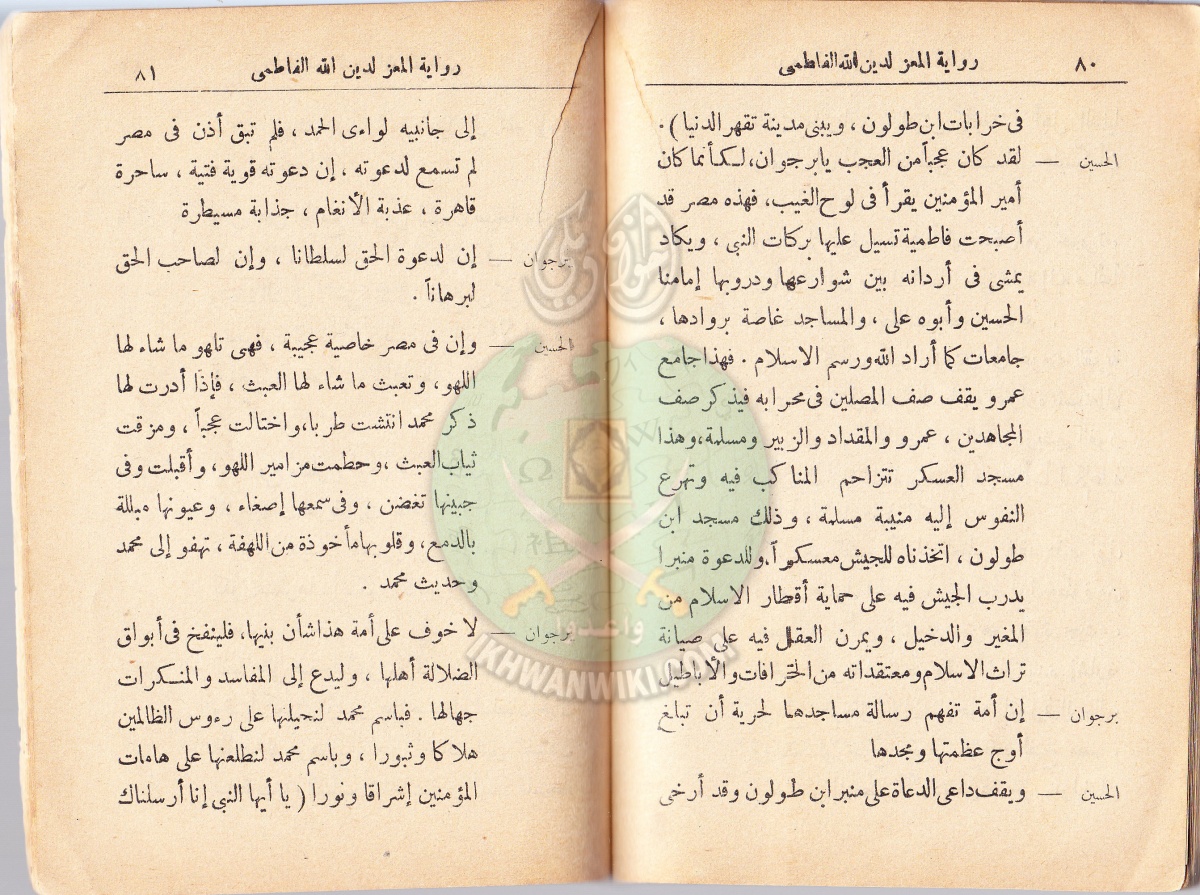 رواية المعز لدين الله الفاطمى ٨٠
فى خرابات ابن طولون ، ويبنى مدينة تقهر الدنيا) .
الحسين — لقد كان عجباً من العجب يا برجوان، لكأنما كان
أمير المؤمنين يقرأ فى لوح الغيب، فهذه مصر قد
أصبحت فاطمية تسيل عليها بركات النبى ، ويكاد
يمشى فى أردانه بين شوارعها ودروبها إمامنا
الحسين وأبوه على ، والمساجد غاصة بروادها ،
جامعات كما أراد الله ورسم الاسلام . فهذا جامع
عمرو يقف صف المصلين فى محرابه فيذكر صف
المجاهدين ، عمرو والمقداد والزبير ومسلمة، وهذا
مسجد العسكر تتزاحم المناكب فيه وتهرع
النفوس إليه منيبة مسلمة ، وذلك مسجد ابن
طولون ، اتخذناه للجيش معسكراً، وللدعوة منبرا
يدرب الجيش فيه على حماية أقطار الاسلام من
المغير والدخيل ، ويمرن العقل فيه على صيانة
تراث الاسلام ومعتقداته من الخرافات والأباطيل
برجوان — إن أمة تفهم رسالة مساجدها لحرية أن تبلغ
أوج عظمتها ومجدها
الحسين — ويقف داعى الدعاة على منبر ابن طولون وقد أرخى
رواية المعز لدين الله الفاطمى ٨١
إلى جانبيه لواءى الحمد ، فلم تبق أذن فى مصر
لم تسمع لدعوته ، إن دعوته قوية فتية ، ساحرة
قاهرة ، عذبة الأنغام ، جذابة مسيطرة
برجوان — إن لدعوة الحق لسلطانا ، وإن لصاحب الحق
لبرهاناً .
الحسين — وإن فى مصر خاصية عجيبة ، فهى تلهو ما شاء لها
اللهو ، وتعبث ما شاء لها العبث ، فإذا أدرت لها
ذكر محمد انتشت طربا، واختالت عجباً ، ومزقت
ثياب العبث ، وحطمت مزامير اللهو ، وأقبلت وفى
جبينها تغضن ، وفى سمعها إصغاء ، وعيونها مبللة
بالدمع، وقلوبها مأخوذة من اللهفة ، تهفو إلى محمد
وحديث محمد .
برجوان — لا خوف على أمة هذا شأن بنيها، فلينفخ فى أبواق
الضلالة أهلها ، وليدع إلى المفاسد والمنكرات
جهالها . فباسم محمد لنحيلنها على رءوس الظالمين
هلاكا وثبورا ، وباسم محمد لنطلعنها على هامات
المؤمنين إشراقا ونورا ( يا أيها النبى إنا أرسلناك
وأعدوا
IKHWANWIKI.COM